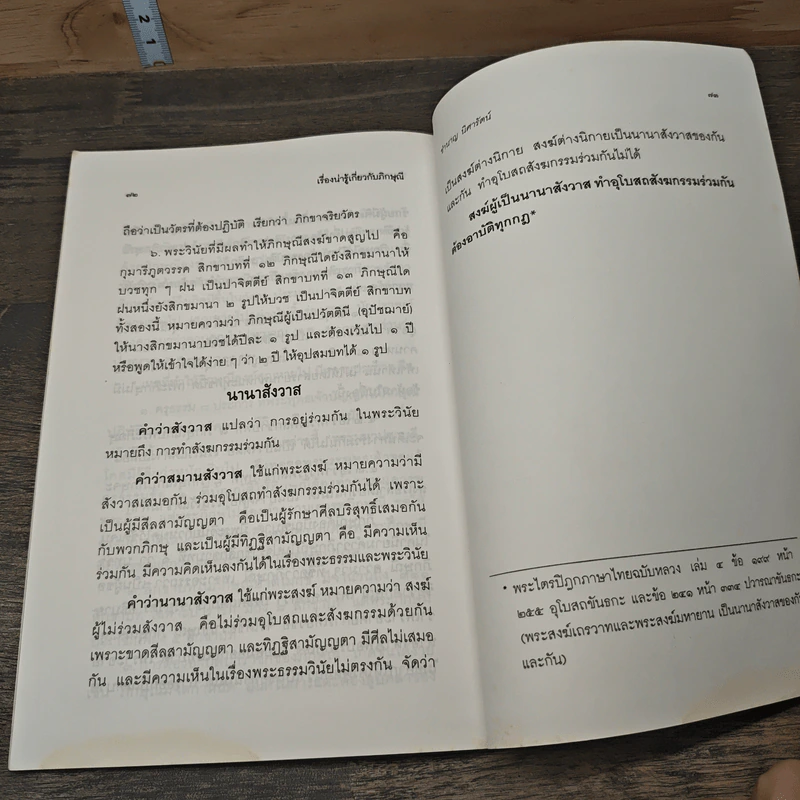 ๗๒
เรื่องน่ารู้เกี่ยวกับภิกษุณี
ถือว่าเป็นวัตรที่ต้องปฏิบัติ เรียกว่า ภิกขาจริยวัตร
๖. พระวินัยที่มีผลทำให้ภิกษุณีสงฆ์ขาดสูญไป คือ
กุมารีภูตวรรค สิกขาบทที่ ๑๒ ภิกษุณีใดยังสิกขมานาให้
บวชทุก ๆ ฝน เป็นปาจิตตีย์ สิกขาบทที่ ๑๓ ภิกษุณีใด
ฝนหนึ่งยังสิกขมานา ๒ รูปให้บวช เป็นปาจิตตีย์ สิกขาบท
ทั้งสองนี้ หมายความว่า ภิกษุณีผู้เป็นปวัตตินี (อุปัชฌาย์)
ให้นางสิกขมานาบวชได้ปีละ ๑ รูป และต้องเว้นไป ๑ ปี
หรือพูดให้เข้าใจได้ง่าย ๆ ว่า ๒ ปี ให้อุปสมบทได้ ๑ รูป
นานาสังวาส
คำว่าสังวาส แปลว่า การอยู่ร่วมกัน ในพระวินัย
หมายถึง การทำสังฆกรรมร่วมกัน
คำว่าสมานสังวาส ใช้แก่พระสงฆ์ หมายความว่ามี
สังวาสเสมอกัน ร่วมอุโบสถทำสังฆกรรมร่วมกันได้ เพราะ
เป็นผู้มีสีลสามัญญตา คือเป็นผู้รักษาศีลบริสุทธิ์เสมอกัน
กับพวกภิกษุ และเป็นผู้มีทิฏฐิสามัญญตา คือ มีความเห็น
ร่วมกัน มีความคิดเห็นลงกันได้ในเรื่องพระธรรมและพระวินัย
คำว่านานาสังวาส ใช้แก่พระสงฆ์ หมายความว่า สงฆ์
ผู้ไม่ร่วมสังวาส คือไม่ร่วมอุโบสถและสังฆกรรมด้วยกัน
เพราะขาดสีลสามัญญตา และทิฏฐิสามัญญตา มีศีลไม่เสมอ
กัน และมีความเห็นในเรื่องพระธรรมวินัยไม่ตรงกัน จัดว่า
๗๓
ชำนาญ นิศารัตน์
เป็นสงฆ์ต่างนิกาย สงฆ์ต่างนิกายเป็นนานาสังวาสของกัน
และกัน ทำอุโบสถสังฆกรรมร่วมกันไม่ได้
สงฆ์ผู้เป็นนานาสังวาส ทำอุโบสถสังฆกรรมร่วมกัน
ต้องอาบัติทุกกฏ*
* พระไตรปิฎกภาษาไทยฉบับหลวง เล่ม ๔ ข้อ ๑๙๙ หน้า
๒๕๕ อุโบสถขันธกะ และข้อ ๒๔๑ หน้า ๓๓๔ ปวารณาขันธกะ
(พระสงฆ์เถรวาทและพระสงฆ์มหายาน เป็นนานาสังวาสของกัน
และกัน)
2
1